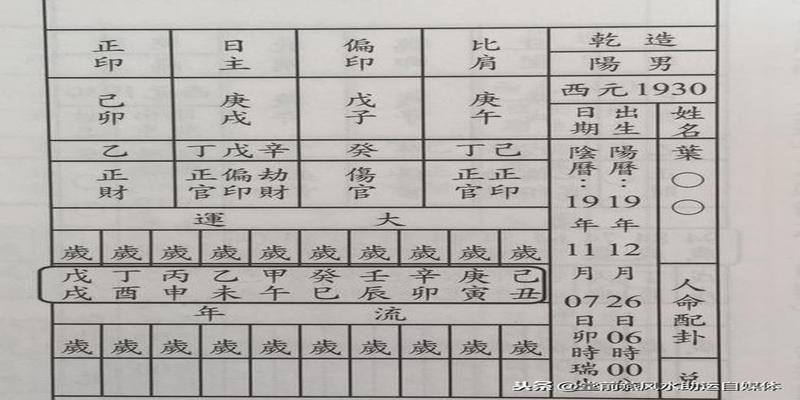 乾造
陽男
西元1930
姓名 葉○○
人命配卦
出生日期
陽曆：19年12月26日06時00
陰曆：19年11月07日卯時瑞
比肩 偏印 日主 正印
庚午 戊子 庚戌 己卯
丁己 癸 丁戊辛 乙
正官 正印 傷官 正官 偏印 劫財 正財
大運
歲 歲 歲 歲 歲 歲 歲 歲 歲 歲
己丑 庚寅 辛卯 壬辰 癸巳 甲午 乙未 丙申 丁酉 戊戌
流年
歲 歲 歲 歲 歲 歲 歲 歲 歲 歲
头条 @
风水助运自媒体